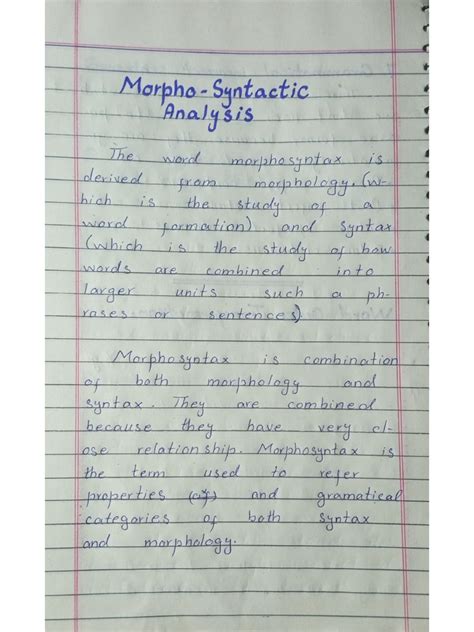 Morpho-Syntactic
Analysis
The word morphosyntax is
derived from morphology. (w-
hich is the study of a
word formation) and syntax
(which is the study of how
words are combined into
larger units such a ph-
rases or sentences)
Morphosyntax is combination
of both morphology and
syntax. They are combined
because they have very cl-
ose relationship. Morphosyntax is
the term used to refer
properties and gramatical
categories of both syntax
and morphology.